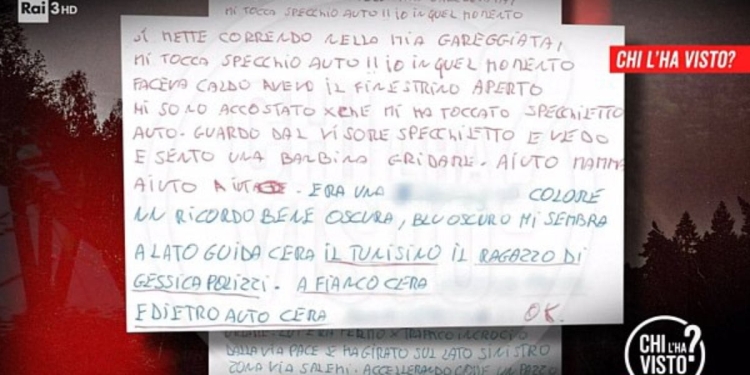 Rai 3HD
MI TOCCA SPECCHIO AUTO !! IO IN QUEL MOMENTO
SI METTE CORRENDO NELLA MIA GAREGGIATA,
MI TOCCA SPECCHIO AUTO !! IO IN QUEL MOMENTO
FACEVA CALDO AVEVO IL FINESTRINO APERTO
MI SONO ACCOSTATO XCHE MI HA TOCCATO SPECCHIETTO
AUTO - GUARDO DAL VISORE SPECCHIETTO E VEDO
E SENTO UNA BAMBINA GRIDARE - AIUTO MAMMA
AIUTO - ERA UNA COLORE
UN RICORDO BENE OSCURA, BLU OSCURO MI SEMBRA
A LATO GUIDA CERA IL TUNISINO IL RAGAZZO DI
GESSICA POLIZZI - A FIANCO CERA
E DIETRO AUTO CERA OK.
DALLA VIA PACE SI HA GIRATO SUL LATO SINISTRO
ZONA VIA SALEMI - ACCELLERANDO COME UN PAZZO
CHI L'HA VISTO?
CHI L'HA
VISTO?